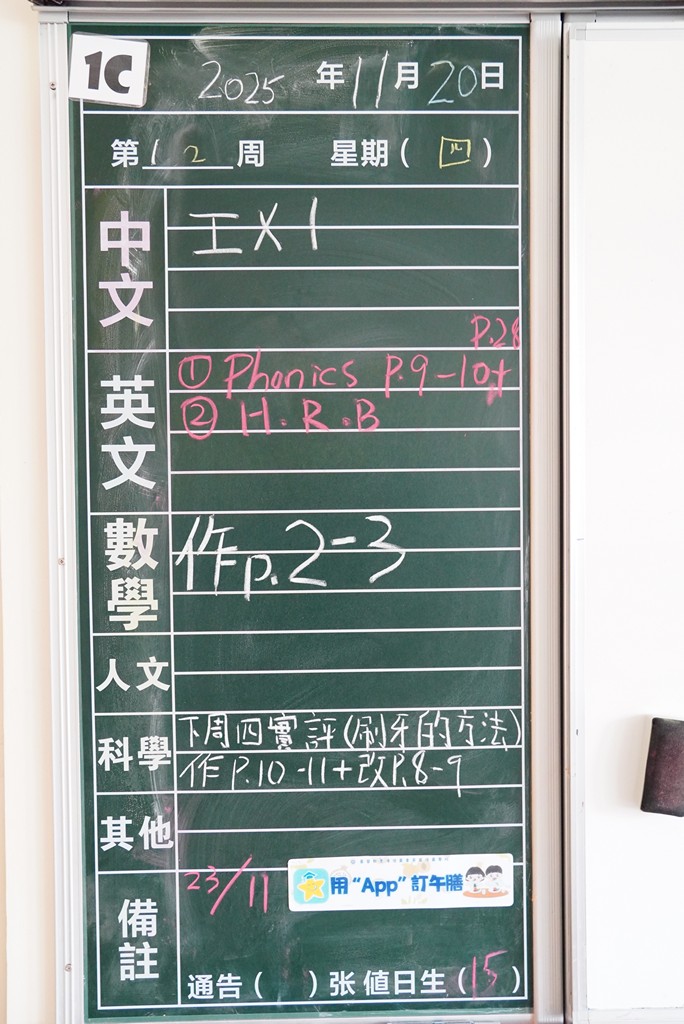 1C
2025年11月20日
第12周 星期(四)
中文
工X1
P.28
英文
① Phonics P.9-10+
② H.R.B
數學
作p.2-3
人文
科學
下周四實評(刷牙的方法)
作P.10-11+改P.8-9
其他
備註
23/11
用“App”訂午膳
通告( )张 值日生(15)